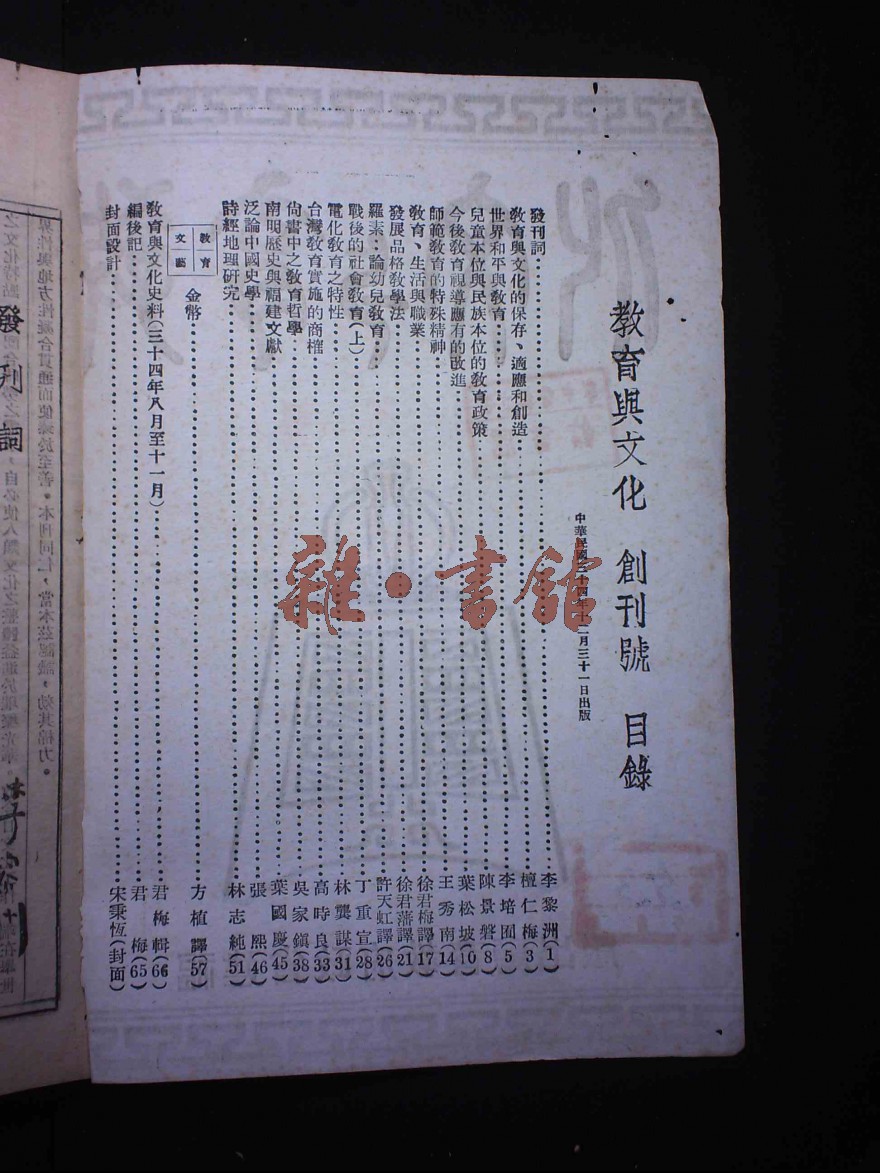 教育與文化 創刊號 目錄
中華民國三十四年十二月三十一日出版
發刊詞……李黎洲(1)
教育與文化的保存、適應和創造……檀仁梅(3)
世界和平與教育……李培囿(5)
兒童本位與民族本位的教育政策……陳景磐(8)
今後教育視導應有的改進……葉松坡(10)
師範教育的特殊精神……王秀南(14)
教育、生活與職業……徐君梅譯(17)
發展品格教學法……徐君藩譯(21)
羅素：論幼兒教育……許天虹譯(26)
戰後的社會教育(上)……丁重宣(28)
電化教育之特性……林龔謀(31)
台灣教育實施的商榷……高時良(33)
尚書中之教育哲學……吳家鎮(38)
南明歷史與福建文獻……葉國慶(45)
泛論中國史學……張熙(46)
詩經地理研究……林志純(51)
教育
文藝
金幣……方植譯(57)
教育與文化史料(三十四年八月至十一月)……君梅輯(66)
編後記……君梅(65)
封面設計……宋秉恆(封面)
雜·書館
發刊詞
界性與地方性融合貫通而使臻於至善。本刊同仁，當本茲認識，効其棉力。